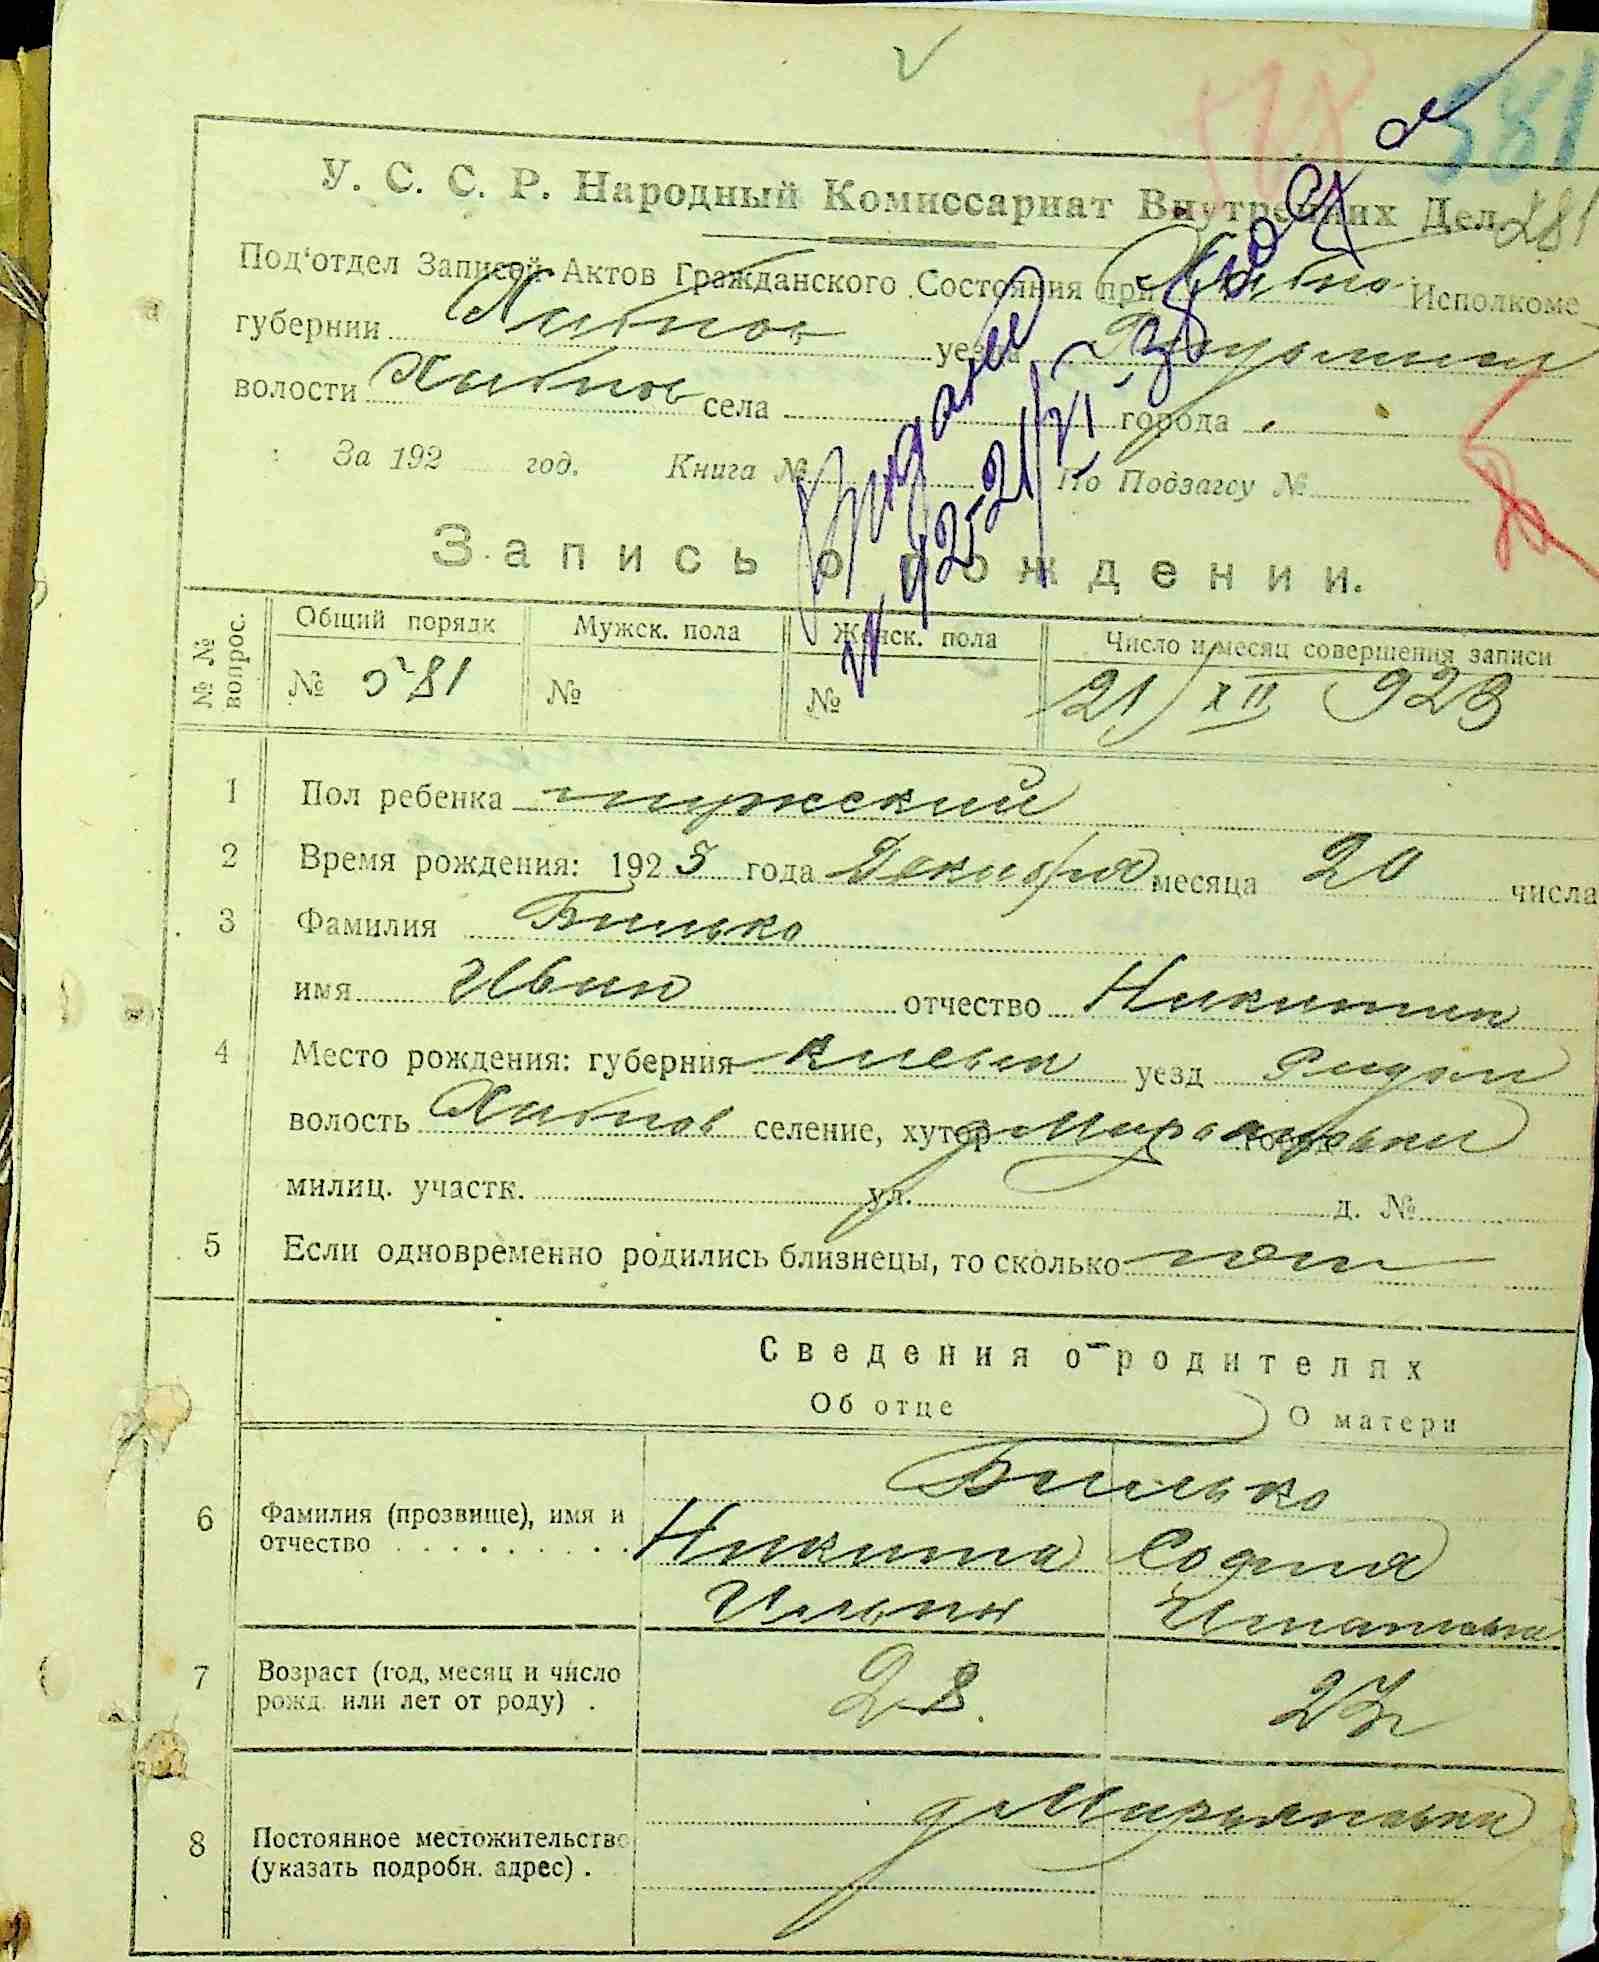 581
281
У. С. С. Р. Народный Комиссариат Внутренних Дел
Под'отдел Записей Актов Гражданского Состояния при Хабно Исполкоме
губернии Хабнов уезда
волости Хабнов села города
За 192 год. Книга № По Подзагсу №
Запись о рождении.
№ № вопрос. Общий порядк Мужск. пола Женск. пола Число и месяц совершения записи
№ 581 № № 21/XII 923
1 Пол ребенка мужеский
2 Время рождения: 1923 года Декабря месяца 20 числа
3 Фамилия Билько
имя Иван отчество Никитин
4 Место рождения: губерния Киевск уезд Радом
волость Хабнов селение, хутор
милиц. участк. ул. д. №
5 Если одновременно родились близнецы, то сколько нет
Сведения о родителях
Об отце О матери
Билько
6 Фамилия (прозвище), имя и отчество Никита София
Ильин Игнатьева
7 Возраст (год, месяц и число рожд. или лет от роду) 28. 27
8 Постоянное местожительство (указать подробн. адрес) д Марьяновка